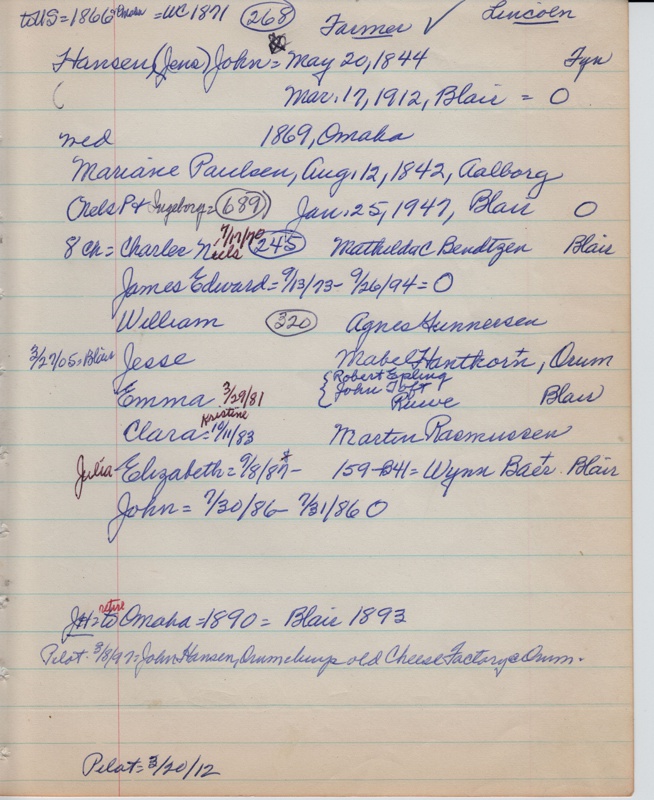 to US = 1866 Omaha = WC 1871 (268) Farmer ✓ Lincoln
Hansen (Jens) John = May 20, 1844 Fyn
Mar. 17, 1912, Blair = O
med 1869, Omaha
Mariane Paulsen, Aug. 12, 1842, Aalborg
Niels P + Ingeborg = (689) Jan. 25, 1947, Blair O
8 ch = Charles Niels 7/17/70 (245) Mathilda C Bendtzen Blair
James Edward = 9/13/73 - 9/26/94 = O
William (320) Agnes Gunnersen
3/27/05 = Blair Jesse Mabel Hanthorn, Orum
Emma 3/29/81 { Robert Epling
{ John Toft
Ruwe Blair
Clara Kristine = 10/11/83 Martin Rasmussen
Julia Elizabeth = 9/8/87 - 159-B41 = Wynn Baer. Blair
John = 7/30/86 - 7/31/86 O
JH = retire to Omaha = 1890 = Blair 1893
Pilot 3/8/97 = John Hansen, Orum buys old Cheese Factory @ Orum.
Pilot = 3/20/12